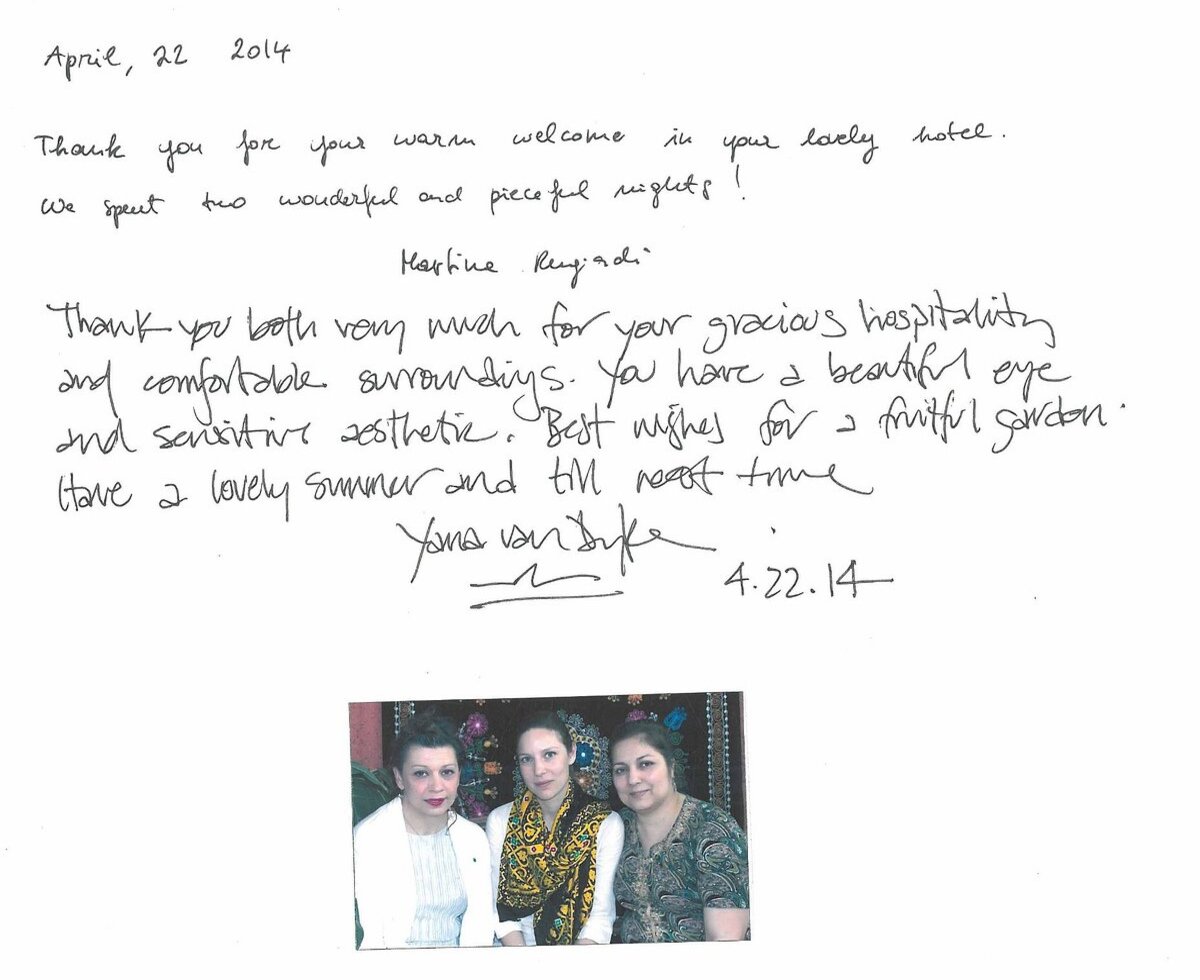 April, 22 2014
Thank you for your warm welcome in your lovely hotel.
We spent two wonderful and pieceful nights!
Martine
Thank you both very much for your gracious hospitality
and comfortable surroundings. You have a beautiful eye
and sensitive aesthetic. Best wishes for a fruitful garden.
Have a lovely summer and till next time
Yana van Dyke
4.22.14